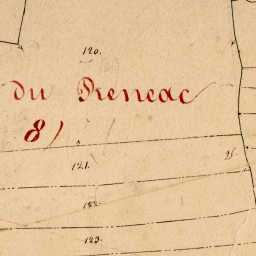 120.
du Preneac
8)
121.
122.
123.